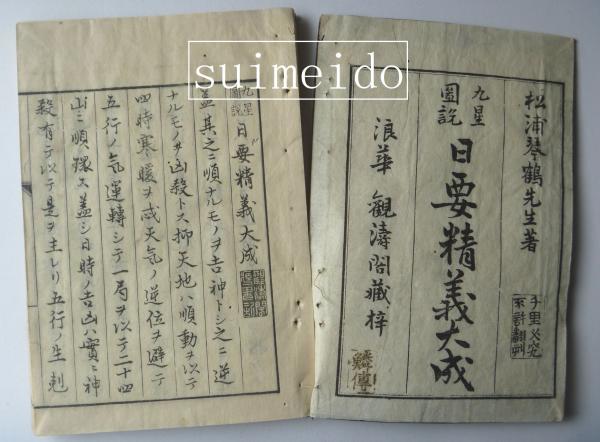 suimeido
松浦琴鶴先生著
九星
圖説
日要精義大成
浪華 觀濤閣藏梓
千里必究
不許翻刻
九星
圖説
日要精義大成
蓋其之ニ順ナルモノヲ吉神トシ之ニ逆
ナルモノヲ凶殺トス抑天地ハ順動ヲ以テ
四時寒暖ヲ成天気ノ逆位ヲ避テ
五行ノ気運轉シテ一局ヲ以テ二十四
山ニ順環ス蓋シ日時ノ吉凶ハ實ニ神
殺有テ以テ是ヲ主レリ五行ノ生剋